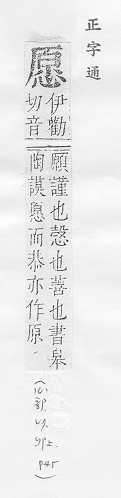 正字通
愿
伊勸
切音
願謹也愨也善也書皋
陶謨愿而恭亦作原
(心部 P45)